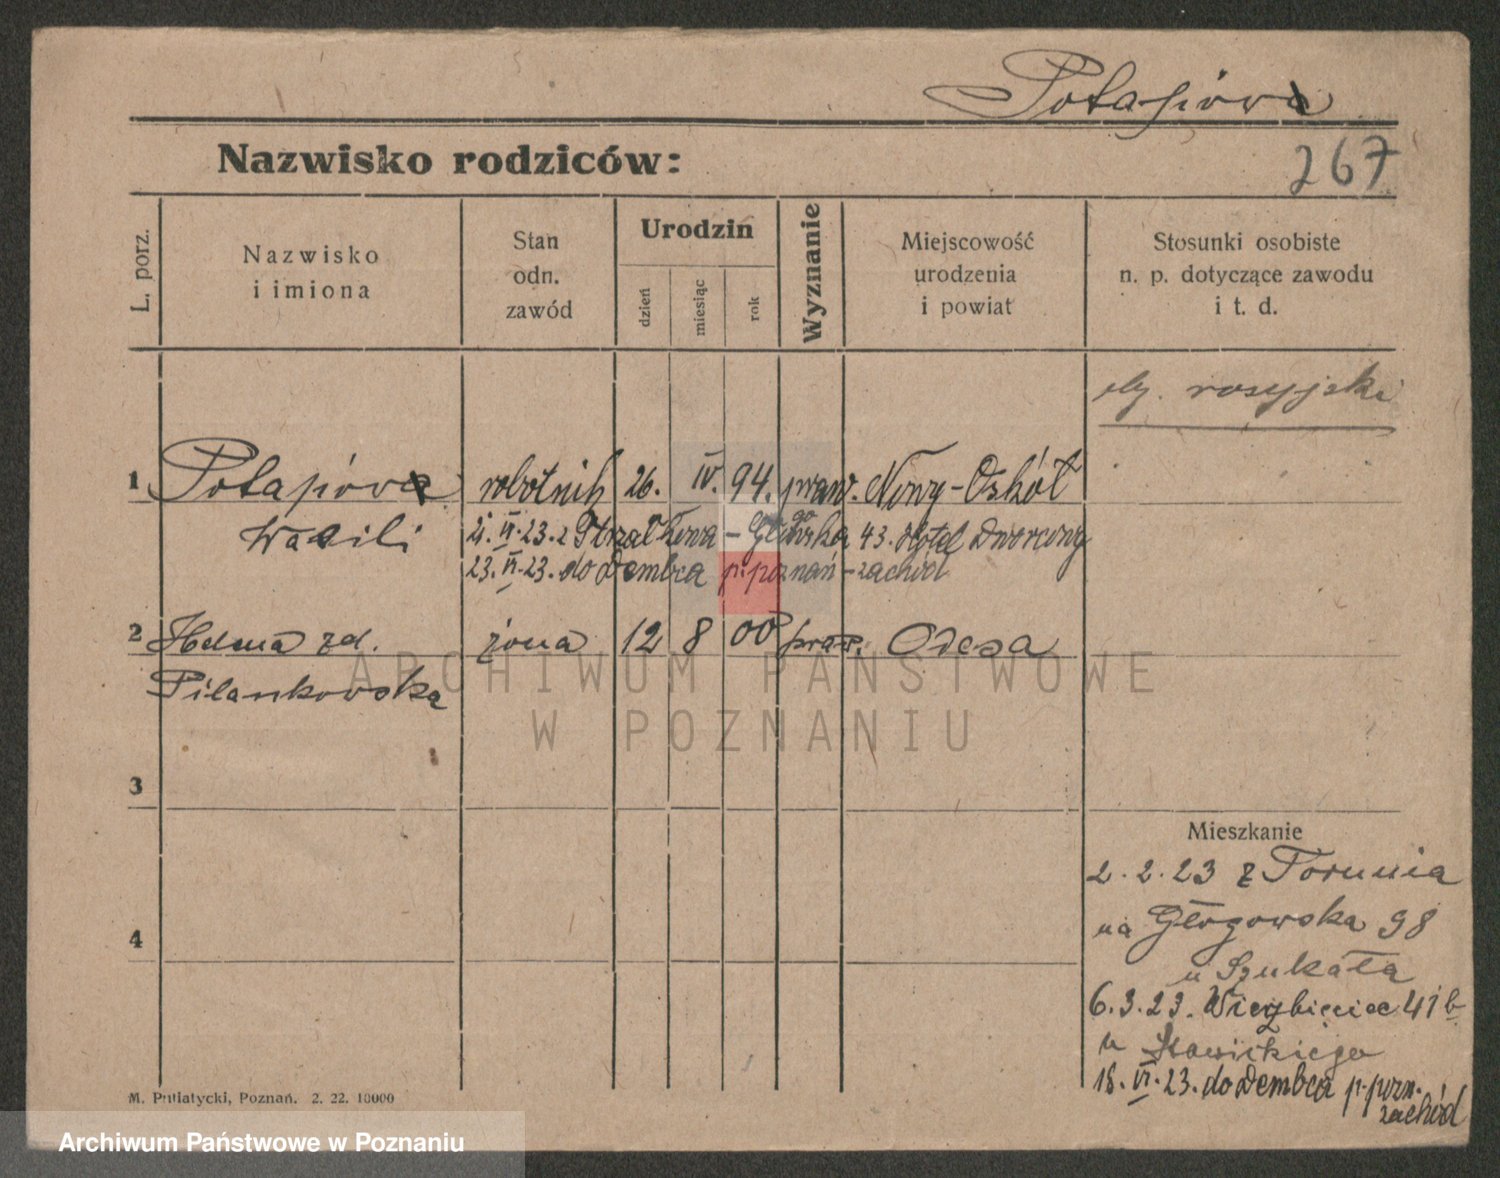 Potapów
Nazwisko rodziców:
267
L. porz.
Nazwisko
i imiona
Stan
odn.
zawód
Urodzin
dzień
miesiąc
rok
Wyznanie
Miejscowość
urodzenia
i powiat
Stosunki osobiste
n. p. dotyczące zawodu
i t. d.
oby. rosyjski
1 Potapów robotnik 26. IV. 94. praw. Nowy-Oskół
Wasili 21. VI. 23. z Strzałkowa - 43. Hotel Dworcowy
23. VI. 23. do Dembca p. poznań - zachód
2 Helena zd. żona 12 8 00 praw. Odesa
Pilankowska
ARCHIWUM PAŃSTWOWE
W POZNANIU
3
4
Mieszkanie
2. 2. 23 z Torunia
na Głogowska 98
u Szukała
6. 3. 23. Wierzbięcice 41 b
u Sławickiego
18. VI. 23. do Dembca p. pozn.
zachód
M. Putiatycki, Poznań. 2. 22. 10000
Archiwum Państwowe w Poznaniu